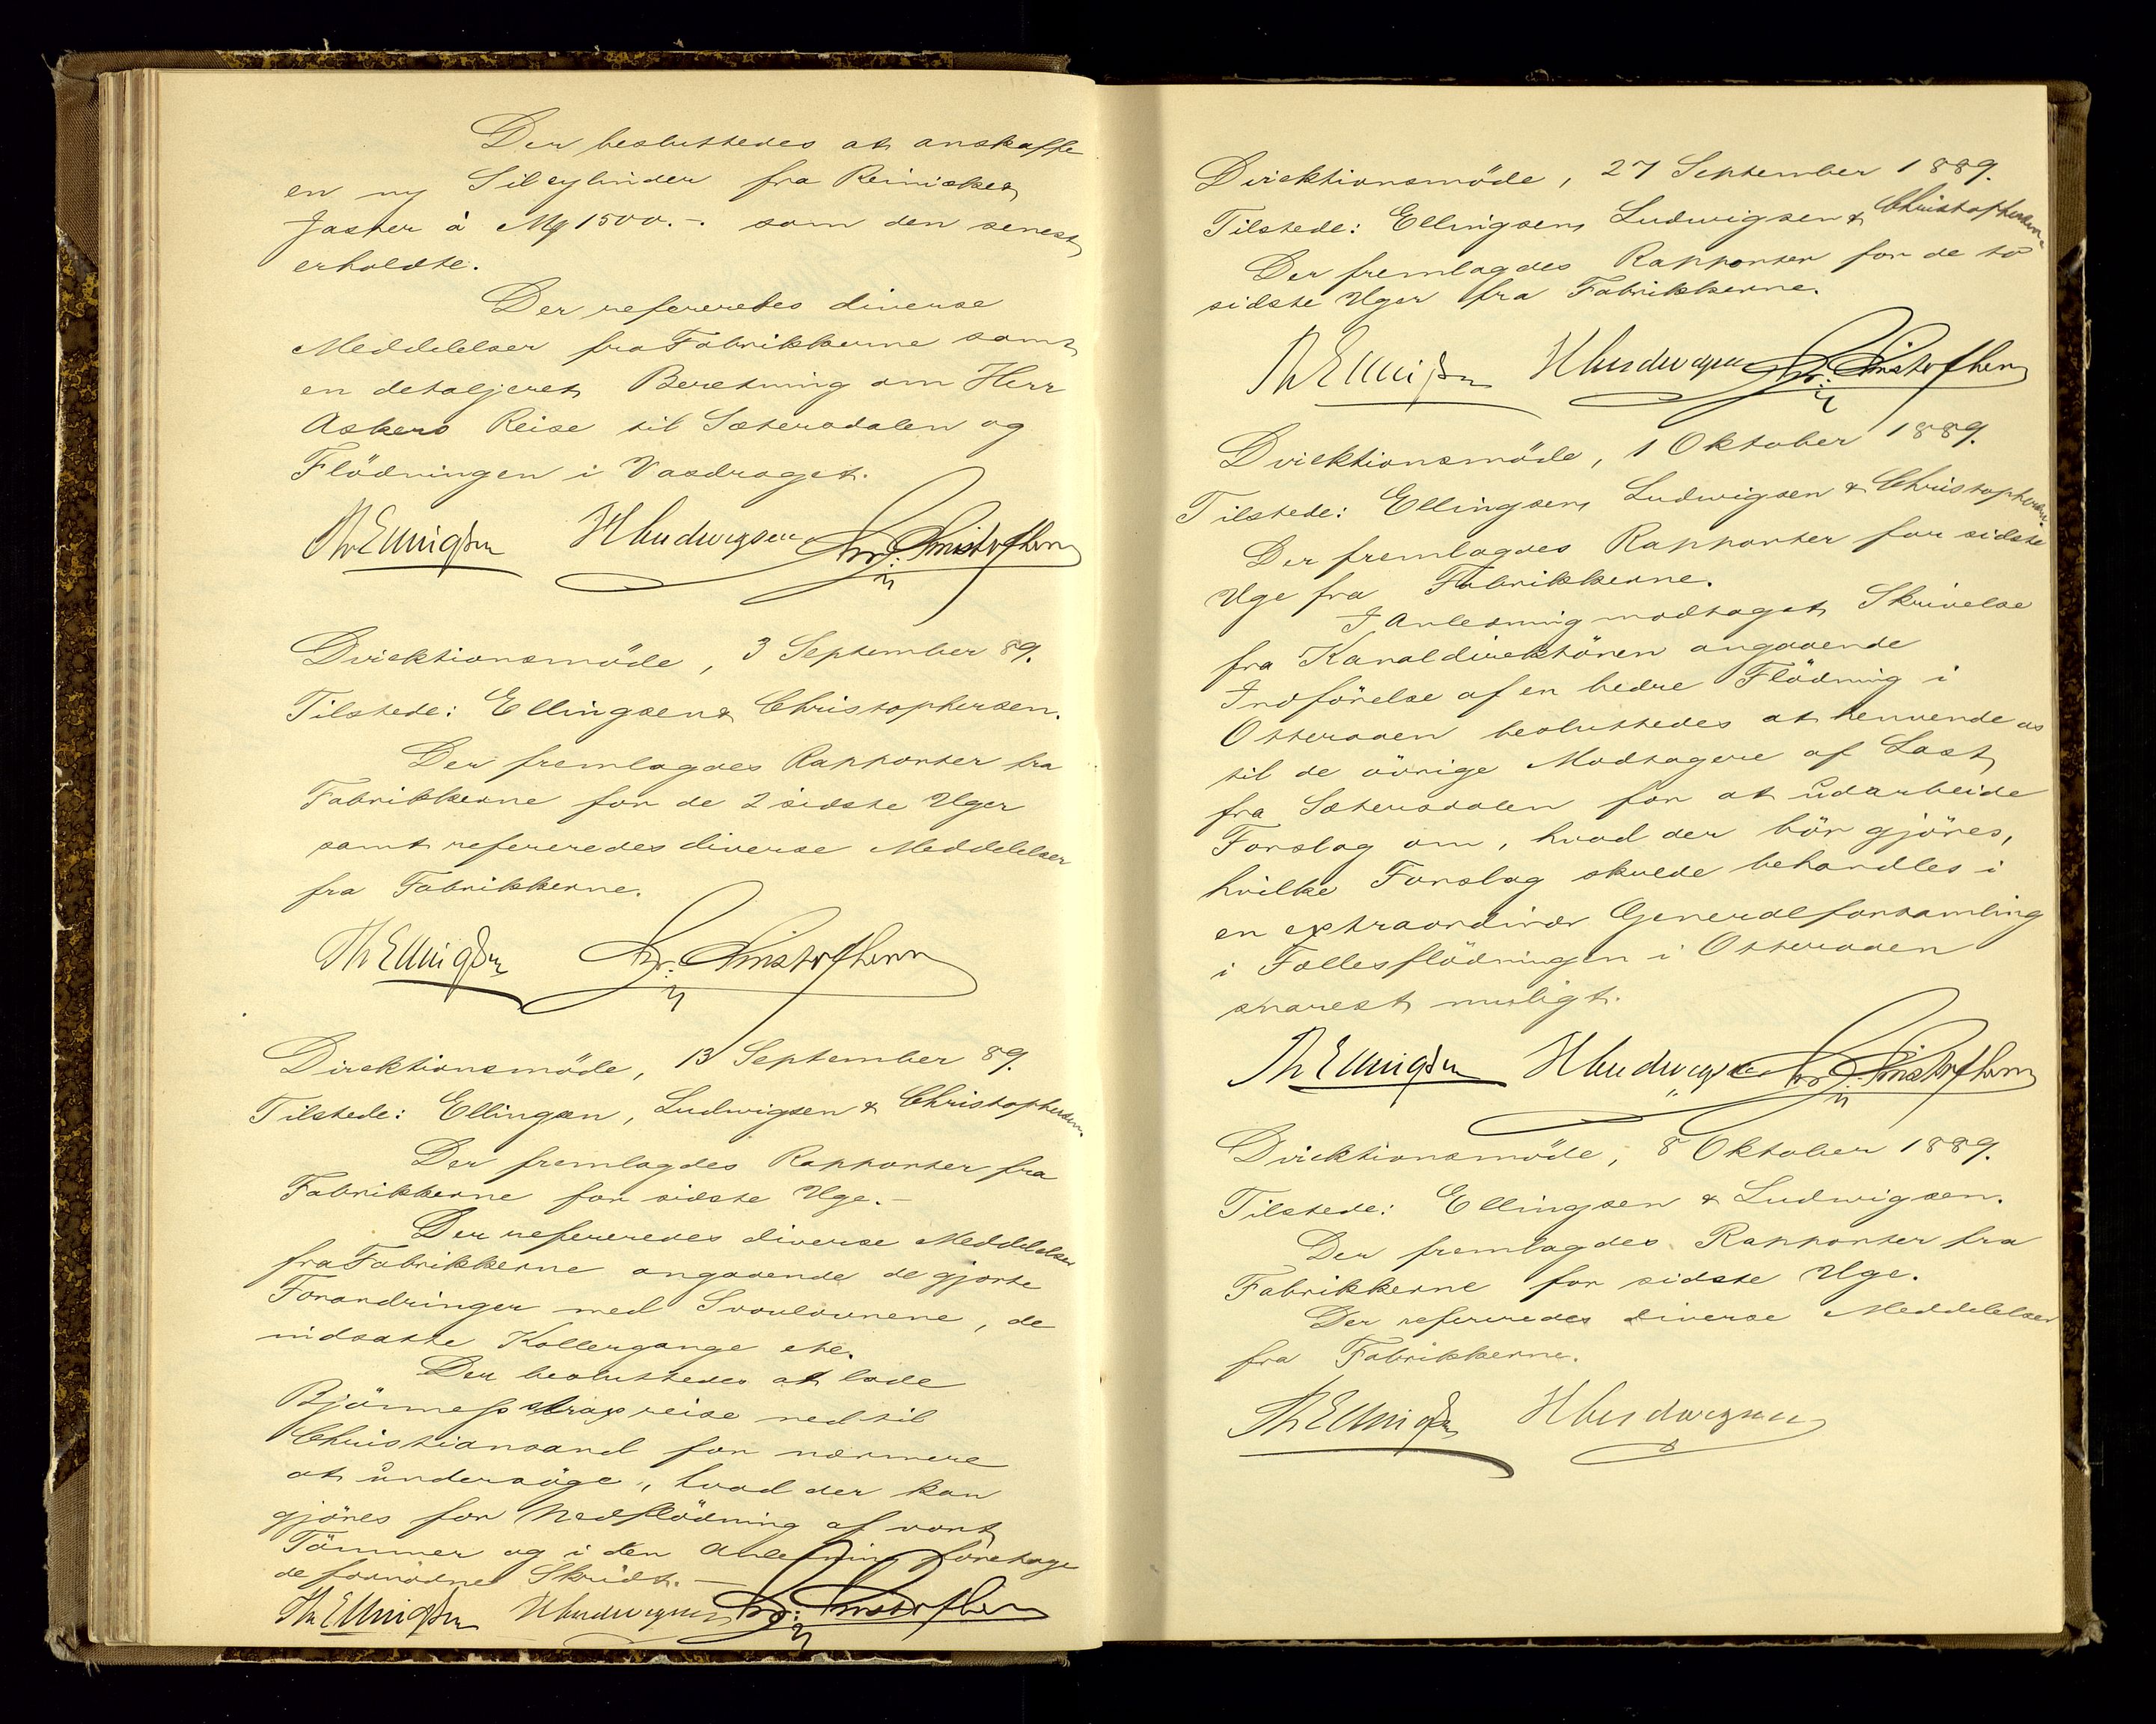 Der besluttedes at anskaffe
en ny Silcylinder fra Reinicke &
Jasper à Mk 1500.-. som den senest
erholdte.
Der refereredes diverse
Meddelelser fra Fabrikkerne samt
en detaljeret Beretning om Herr
Askers Reise til Sætersdalen og
Flödningen i Vasdraget.
Th Ellingsen H Ludwigsen Chr. Christophersen
Direktionsmöde, 3 September 89.
Tilstede: Ellingsen & Christophersen.
Der fremlagdes Rapporter fra
Fabrikkerne for de 2 sidste Uger
samt refereredes diverse Meddelelser
fra Fabrikkerne.
Th Ellingsen Chr. Christophersen
Direktionsmöde, 13 September 89.
Tilstede: Ellingsen, Ludwigsen & Christophersen.
Der fremlagdes Rapporter fra
Fabrikkerne for sidste Uge.-
Der refereredes diverse Meddelelser
fra Fabrikkerne angaaende de gjorte
Forandringer med Svovlovnene, de
indsatte Kollergange etc.
Der besluttedes at lade
Bjönness strax reise ned til
Christiansand for nærmere
at undersöge, hvad der kan
gjöres for Nedflödning af vort
Tömmer og i den Anledning foretage
de fornödne Skridt.-
Th Ellingsen H Ludwigsen Chr. Christophersen
Direktionsmöde, 27 September 1889.
Tilstede: Ellingsen, Ludwigsen & Christophersen.
Der fremlagdes Rapporter for de to
sidste Uger fra Fabrikkerne.
Th Ellingsen H Ludwigsen Chr. Christophersen
Direktionsmöde, 1 Oktober 1889.
Tilstede: Ellingsen, Ludwigsen & Christophersen.
Der fremlagdes Rapporter for sidste
Uge fra Fabrikkerne.
I Anledning modtaget Skrivelse
fra Kanaldirektören angaaende
Indförelse af en bedre Flödning i
Otteraaen besluttedes at henvende os
til de övrige Modtagere af Last
fra Sætersdalen for at udarbeide
Forslag om, hvad der bör gjöres,
hvilke Forslag skulde behandles i
en extraordinær Generalforsamling
i Fællesflödningen i Otteraaen
snarest muligt.
Th Ellingsen H Ludwigsen Chr. Christophersen
Direktionsmöde, 8 Oktober 1889.
Tilstede: Ellingsen & Ludwigsen.
Der fremlagdes Rapporter fra
Fabrikkerne for sidste Uge.
Der refereredes diverse Meddelelser
fra Fabrikkerne.
Th Ellingsen H Ludwigsen